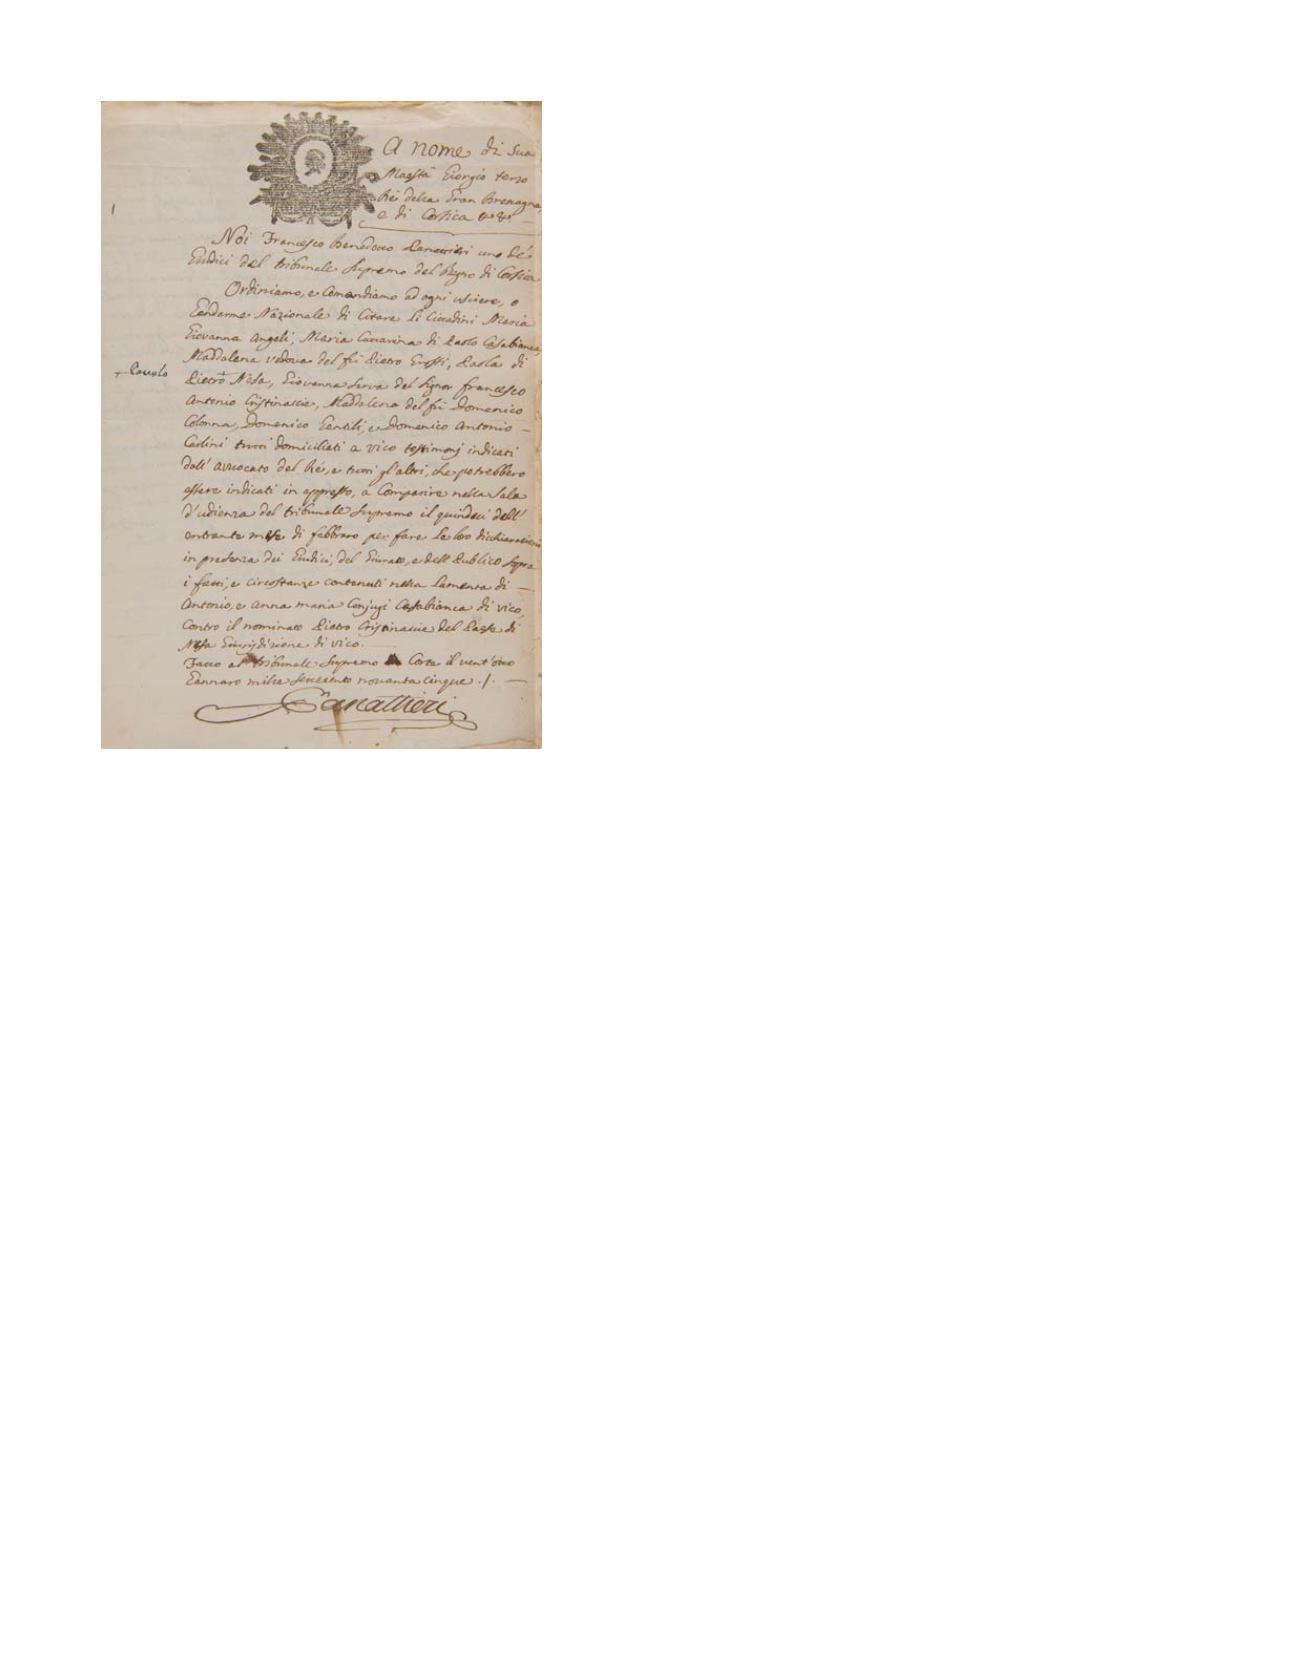 A nome di Sua
Maestà Giorgio terzo
Rè della Gran Brettagna,
e di Corsica &. &.
Noi Francesco Benedetto Panattieri uno de'
Giudici del tribunale Supremo del Regno di Corsica
Ordiniamo, e Comandiamo ad ogni usciere, o
Gendarme Nazionale di Citare li Cittadini Maria
Giovanna Angeli, Maria Cattarina di Paolo Casabianca,
Maddalena vedova del fù Pietro Grossi, Paola di
+ Pauolo
Pietro + Nesa, Giovanna serva del Signor Francesco
Antonio Cristinaccie, Maddalena del fù Domenico
Colonna, Domenico Gentili, e Domenico Antonio
Carlini tutti domiciliati a vico testimonj indicati
dall' avvocato del Rè, e tutti gl'altri, che potrebbero
essere indicati in appresso, a Comparire nella Sala
d'udienza del tribunale Supremo il quindeci dell'
entrante mese di febbraro per fare le loro dichiarazioni
in presenza dei Giudici, del Giurato, e dell Publico sopra
i fatti, e circostanze contenuti nella lamenta di
Antonio, e Anna maria Conjugi Casabianca di vico,
Contro il nominato Pietro Cristinaccie del Paese di
Nesa Giurisdizione di vico.
Fatto al tribunale Supremo Corte il vent'otto
Gennaro mille settecento novanta cinque ./.
Panattieri